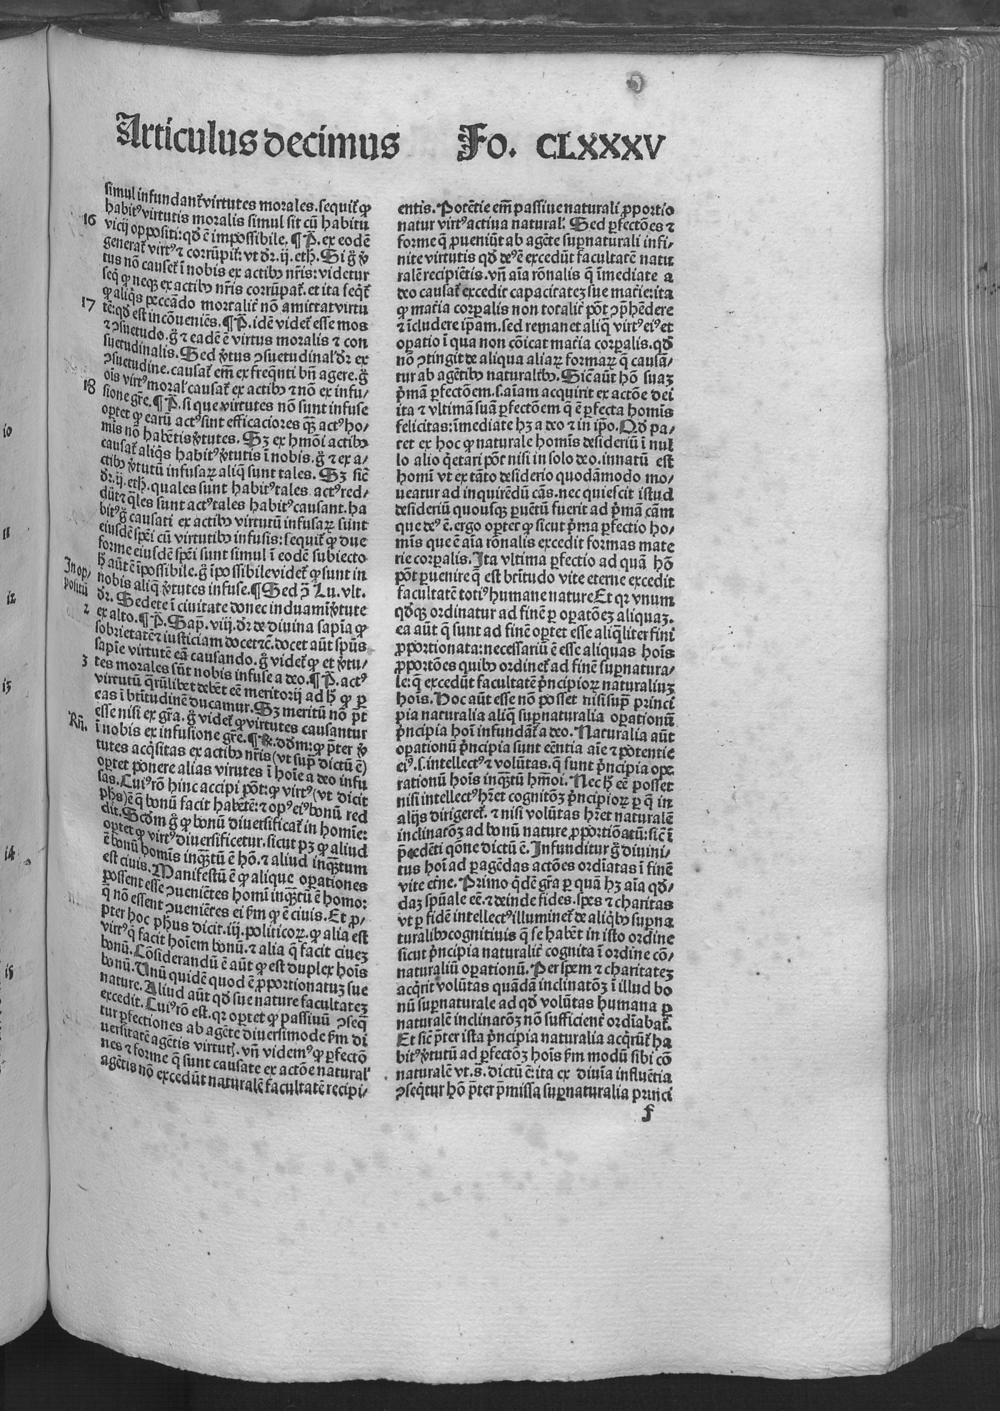 Articulus decimus Fo. CLXXXV
simul infundanť virtutes morales. sequiť ꝙ
habitꝰ virtutis moralis simul sit cū habitu
16 vicij oppositi: qď ē impossibile. ¶ P̃. ex eodē
generať virtꝰ ⁊ corrūpiť: vt dř. ij. eth̃. Si g̃ ꝟ̃
tus nō causeť ī nobis ex actibꝰ nr̃is: videtur
seq̄ ꝙ neqꝫ ex actibꝰ nr̃is corrūpať. et ita seq̄ť
ꝙ aliq̃s peccādo mortaliť nō amittat virtu
17 tē: qď est incōueniēs. ¶ P̃. idē videť esse mos
⁊ ꝯsuetudo. g̃ ⁊ eadē ē virtus moralis ⁊ con
suetudinalis. Sed ꝟ̃tus ꝯsuetudinal̓ dř ex
ꝯsuetudine. causať em̄ ex freq̄nti bn̄ agere. g̃
oīs virtꝰ moral̓ causať ex actibꝰ ⁊ nō ex infu⸗
18 sione gr̃e. ¶ P̃. si que virtutes nō sunt infuse
oꝑtet ꝙ earū actꝰ sint efficaciores qꝫ̄ actꝰ ho⸗
mīs nō habētis ꝟ̃tutes. Sꝫ ex hmōi actibꝰ
causať aliq̃s habitꝰ ꝟ̃tutis ī nobis. g̃ ⁊ ex a⸗
ctibꝰ ꝟ̃tutū infusaꝝ aliq̄ sunt tales. Sꝫ sic̄
dř. ij. eth̃. quales sunt habitꝰ tales actꝰ red⸗
dūt ⁊ q̃les sunt actꝰ tales habitꝰ causant. ha
bitꝰ g̃ causati ex actibꝰ virtutū infusaꝝ sunt
eiusdē sp̄ei cū virtutibꝰ infusis: sequiť ꝙ due
forme eiusdē sp̄ei sunt simul ī eodē subiecto
In op⸗ h̃ aūt ē īpossibile. g̃ īpossibile videť ꝙ sunt in
politū nobis aliq̄ ꝟ̃tutes infuse. ¶ Sed ꝯ̄ Lu. vlt.
dř. Sedete ī ciuitate donec induamī ꝟ̃tute
2 ex alto. ¶ P̃. Sap̄. viij. dř de diuina sapīa ꝙ
sobrietatē ⁊ iusticiam docet ⁊c̄. docet aūt sp̄us
sapīe virtutē eā causando. g̃ videť ꝙ et ꝟ̃tu⸗
3 tes morales sūt nobis infuse a deo. ¶ P̃. actꝰ
virtutū q̃rūlibet debēt eē meritorij ad h̃ ꝙ ꝑ
eas ī btītudinē ducamur. Sꝫ meritū nō p̄t
esse nisi ex gr̃a. g̃ videť ꝙ virtutes causantur
Rñ. ī nobis ex infusione gr̃e. ¶ R̃. dōm: ꝙ p̄ter ꝟ̃
tutes acq̃sitas ex actibꝰ nr̃is (vt sup̄ dictū ē)
oꝑtet ponere alias virutes ī hoīe a deo infu
sas. Cuiꝰ rō hinc accipi pōt: ꝙ virtꝰ (vt dicit
ph̃s) ē q̄ bonū facit habētē: ⁊ opꝰ eiꝰ bonū red
dit. Scđm g̃ ꝙ bonū diuersificať in homīe:
oꝑtet ꝙ virtꝰ diuersificetur. sicut pꝫ ꝙ aliud
ē bonū homīs inqꝫ̄tū ē hō. ⁊ aliud inqꝫ̄tum
est ciuis. Manifestū ē ꝙ alique oꝑationes
possent esse ꝯueniētes homī inqꝫ̄tū ē homo:
q̄ nō essent ꝯueniētes ei ẜm ꝙ ē ciuis. Et ꝓ⸗
pter hoc ph̃us dicit. iij. politicoꝝ. ꝙ alia est
virtꝰ q̄ facit hoīem bonū. ⁊ alia q̄ facit ciueꝫ
bonū. Cōsiderandū ē aūt ꝙ est duplex hoīs
bonū. Unū quidē quod ē ꝓportionatuꝫ sue
nature. Aliud aūt qď sue nature facultateꝫ
excedit. Cuiꝰ rō est. qꝛ oꝑtet ꝙ passiuū ꝯseq̄
tur ꝑfectiones ab agēte diuersimode ẜm di
uersitatē agētis virtutꝭ. vn̄ videmꝰ ꝙ ꝑfectō
nes ⁊ forme q̄ sunt causate ex actōe natural̓
agētis nō excedūt naturalē facultatē recipi⸗
entis. Potētie em̄ passiue naturali ꝓportio
natur virtꝰ actiua natural̓. Sed ꝑfectōes ⁊
forme q̄ ꝓueniūt ab agēte suꝑnaturali infi⸗
nite virtutis qď deꝰ ē excedūt facultatē natu
ralē recipiētis. vn̄ aīa rōnalis q̄ īmediate a
deo causať excedit capacitateꝫ sue mať̓ie: ita
ꝙ mať̓ia corꝑalis non totaliť pōt ꝯp̄hēdere
⁊ īcludere ip̄am. sed remanet aliq̄ virtꝰ eiꝰ et
oꝑatio ī qua non cōicat mať̓ia corꝑalis. qď
nō ꝯtingit de aliqua aliaꝝ formaꝝ q̄ causā⸗
tur ab agētibꝰ naturalibꝰ. Sic̄ aūt hō suaꝫ
p̃mā ꝑfectōem. ſ. aīam acquirit ex actōe dei
ita ⁊ vltimā suā ꝑfectōem q̄ ē ꝑfecta homīs
felicitas: īmediate hꝫ a deo ⁊ in ip̄o. Qď pa⸗
tet ex hoc ꝙ naturale homīs desideriū ī nul
lo alio q̄etari pōt nisi in solo deo. innatū est
homī vt ex tāto desiderio quodāmodo mo⸗
ueatur ad inquirēdū cās. nec quiescit istud
desideriū quousqꝫ ꝑuētū fuerit ad p̃mā cām
que deꝰ ē. ergo oꝑtet ꝙ sicut p̃ma ꝑfectio ho⸗
mīs que ē aīa rōnalis excedit formas mate
rie corꝑalis. Ita vltima ꝑfectio ad quā hō
pōt ꝑuenire q̄ est btītudo vite eterne excedit
facultatē totiꝰ humane nature. Et qꝛ vnum
qďqꝫ ordinatur ad finē ꝑ oꝑatōeꝫ aliquaꝫ.
ea aūt q̄ sunt ad finē oꝑtet esse aliq̃liter fini
ꝓportionata: necessariū ē esse aliquas hoīs
ꝓportōes quibꝰ ordineť ad finē suꝑnatura⸗
le: q̄ excedūt facultatē p̃ncipioꝝ naturaliuꝫ
hoīs. Hoc aūt esse nō posset nisi suꝑ princi
pia naturalia aliq̄ suꝑnaturalia oꝑationū
p̃ncipia hoī infundāť a deo. Naturalia aūt
oꝑationū p̃ncipia sunt eēntia aīe ⁊ potentie
eiꝰ. ſ. intellectꝰ ⁊ volūtas. q̄ sunt p̃ncipia oꝑe
rationū hoīs inqꝫ̄tū hm̄oi. Nec h̃ eē posset
nisi intellectꝰ hr̃et cognitōꝫ p̃ncipioꝝ ꝑ q̄ in
alijs dirigereť. ⁊ nisi volūtas hr̃et naturalē
inclinatōꝫ ad bonū nature ꝓportiōatū: sic̄ ī
p̄cedēti q̄one dictū ē. Infunditur g̃ diuini⸗
tus hoī ad ꝑagēdas actōes ordiatas ī finē
vite etr̃ne. Primo q̃dē gr̃a ꝑ quā hꝫ aīa qď⸗
daꝫ sp̄uale eē. ⁊ deinde fides. spes ⁊ charitas
vt ꝑ fidē intellectꝰ illumineť de aliq̃bꝰ suꝑna
turalibꝰ cognitiuis q̄ se habēt in isto ordine
sicut p̃ncipia naturaliť cognita ī ordine cō⸗
naturaliū oꝑationū. Per spem ⁊ charitateꝫ
acq̃rit volūtas quādā inclinatōꝫ ī illud bo
nū suꝑnaturale ad qď volūtas humana ꝑ
naturalē inclinatōꝫ nō sufficienť ordīabať.
Et sic̄ p̄ter ista p̃ncipia naturalia acq̃rūť ha
bitꝰ ꝟ̃tutū ad ꝑfectōꝫ hoīs ẜm modū sibi cō
naturalē vt. ſ. dictū ē: ita ex diuīa influētia
ꝯseq̃tur hō p̄ter p̄missa suꝑnaturalia princi
f
10
11
12
13
14
15